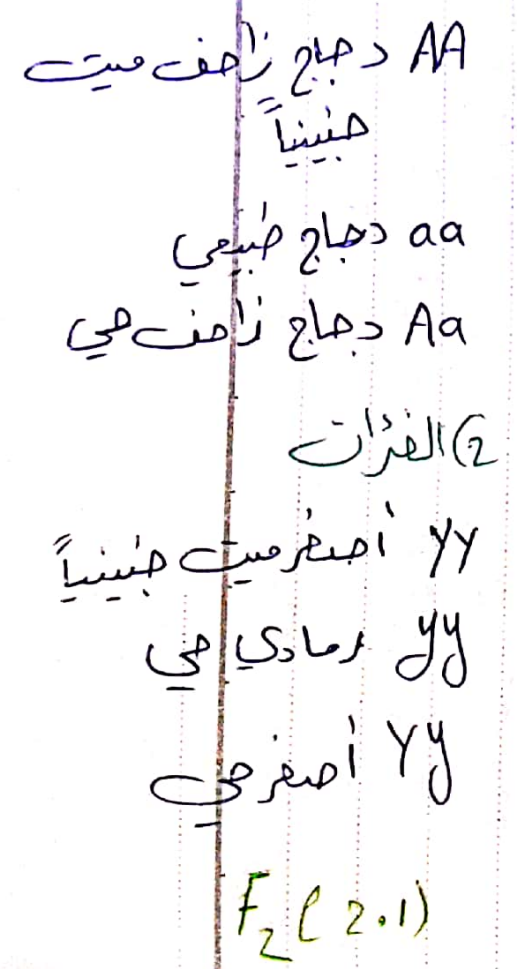 AA دجاج زاحف ميت
جنينياً
aa دجاج طبيعي
Aa دجاج زاحف حي
2) الفئران
YY أصفر ميت جنينياً
yy رمادي حي
Yy أصفر حي
F₂ (2.1)